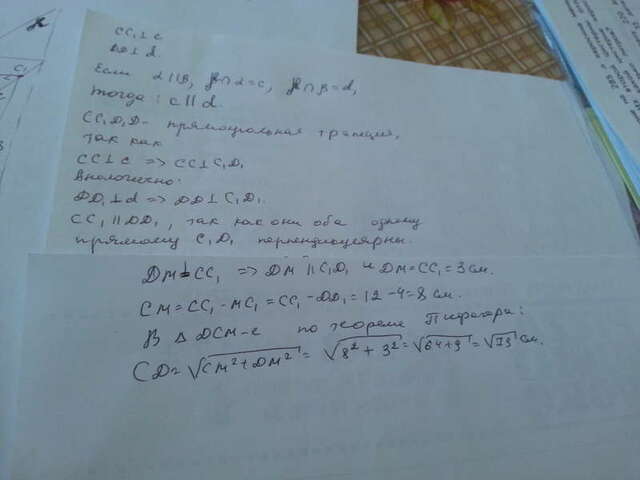 CC₁⊥c
DD⊥d.
Если α∥β, γ∩α=c, γ∩β=d,
тогда: c∥d.
CC₁D₁D - прямоугольная трапеция,
так как
CC⊥c => CC⊥C₁D₁
Аналогично:
DD₁⊥d => DD⊥C₁D₁.
CC₁∥DD₁, так как они оба одному
прямому C₁D₁ перпендикулярны.
DM⊥CC₁ => DM∥C₁D₁ и DM=CC₁=3 см.
CM=CC₁-MC₁=CC₁-DD₁=12-4=8 см.
В △ DCM-е по теореме Пифагора:
CD=√CM²+DM²=√8²+3²=√64+9=√73 см.
C₁